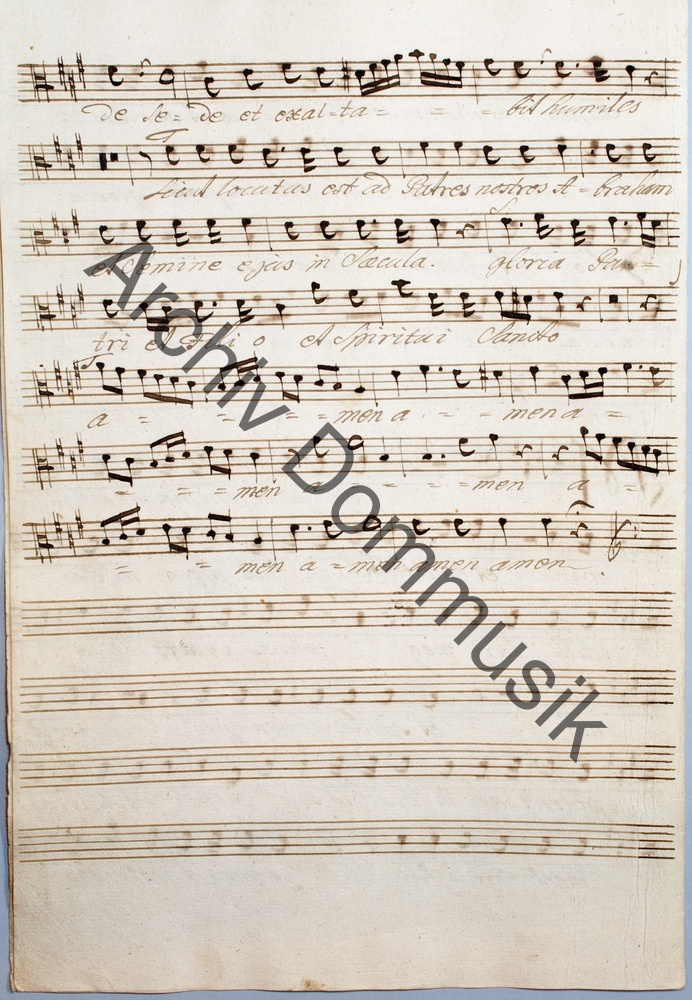 de se = de et exal = ta = = = bit humiles
Sicut locutus est ad Patres nostros A = braham
et semine ejus in Sæcula. gloria Pa = =
tri et Fili o et Spiritui Sancto
a = = = = men a = = men a =
= = = men a = = = men a =
= = men a = men amen amen
Archiv Dommusik